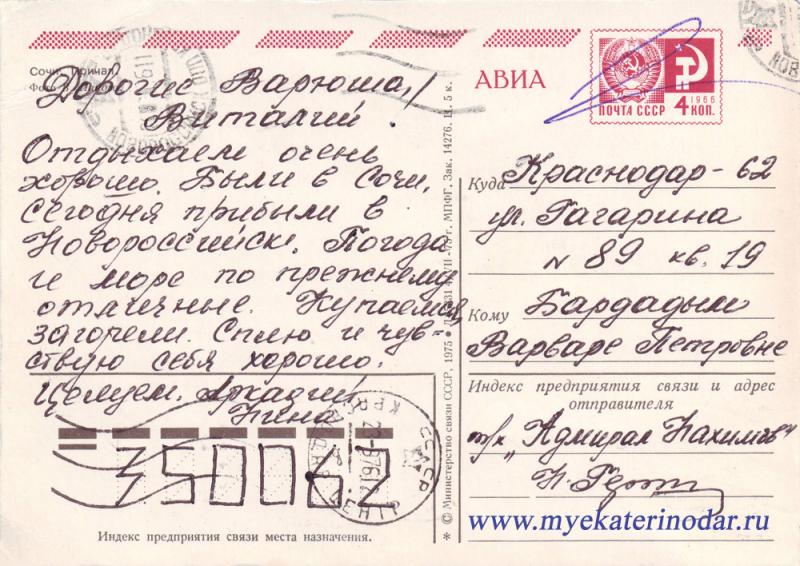 Сочи. Причал
Фото
Дорогие Варюша,
Виталий!
Отдыхаем очень
хорошо. Были в Сочи,
сегодня прибыли в
Новороссийск. Погода
и море по прежнему
отличные. Купаемся,
загорели. Сплю и чув-
ствую себя хорошо.
Целуем. Аркадий
Нина
350062
Индекс предприятия связи места назначения.
* © Министерство связи СССР, 1975 • 75 г. МПФГ. Зак. 14276. Ц. 5 к.
АВИА
1966
ПОЧТА СССР 4 КОП.
Куда Краснодар-62
ул. Гагарина
N 89 кв. 19
Кому Бардадым
Варваре Петровне
Индекс предприятия связи и адрес
отправителя
т/х "Адмирал Нахимов"
Н.
СССР
КРАСНОДАР
ЦЕНТР
www.myekaterinodar.ru